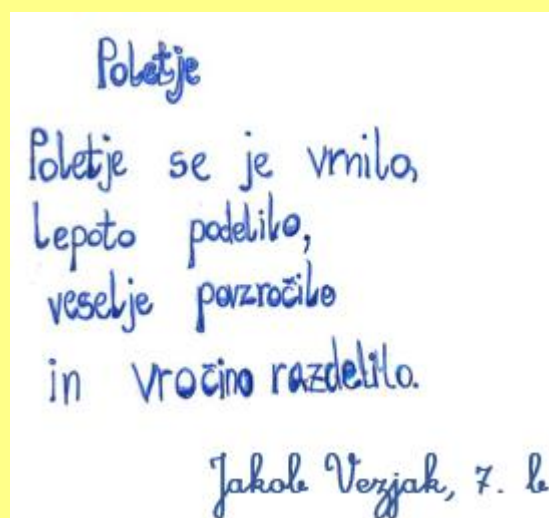 Poletje
Poletje se je vrnilo,
lepoto podelilo,
veselje povzročilo
in vročino razdelilo.
Jakob Vezjak, 7. b